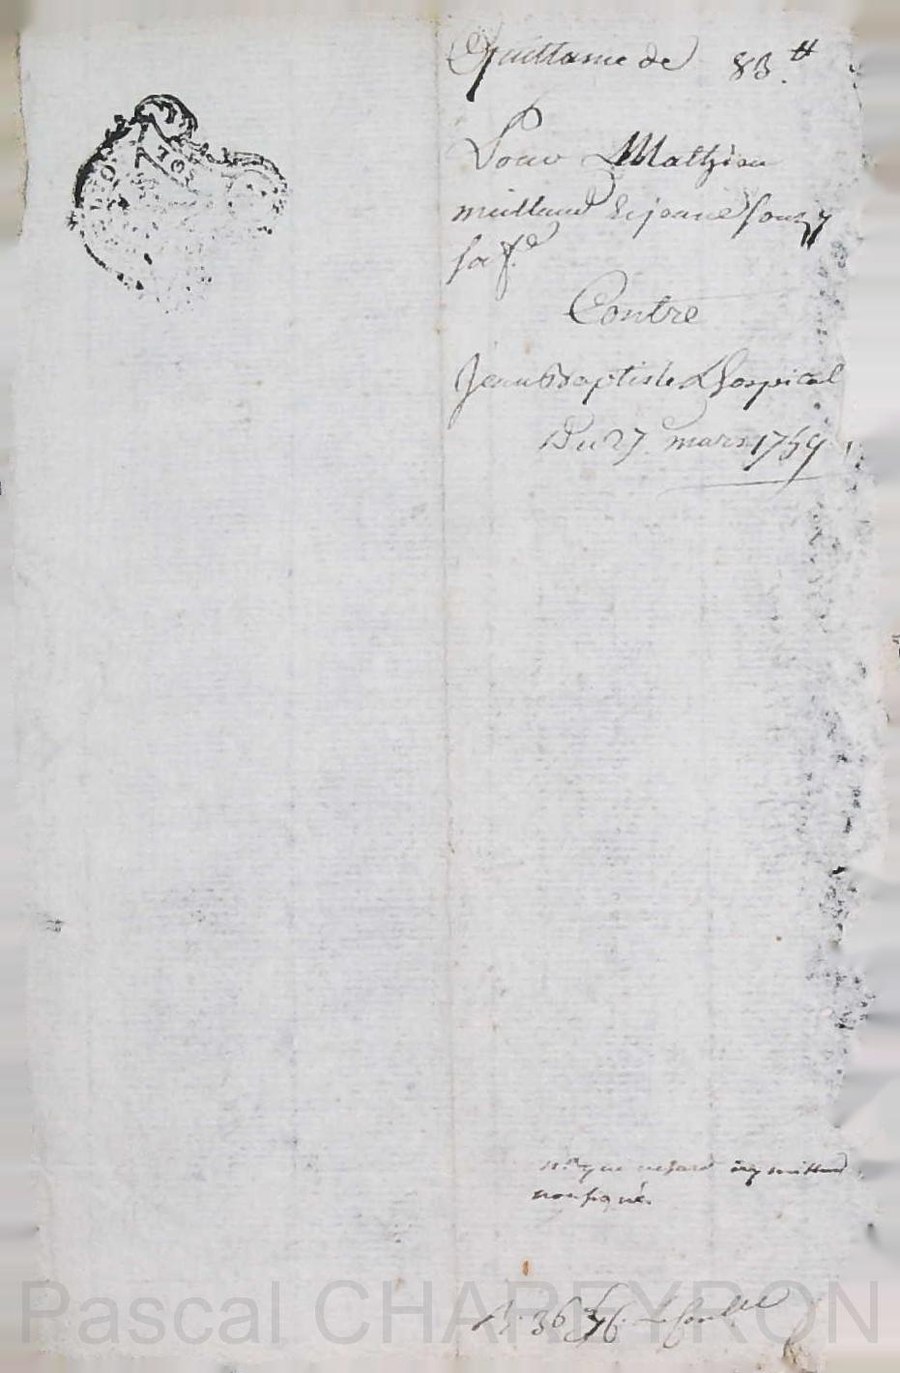 Quittance de 83.tt
Pour Mathieu
mielland & jeanne souzy
sa f.e
Contre
Jean Baptiste Lhospital
Du 27 mars 1759
que mielland
non signé.
Pascal CHAREYRON